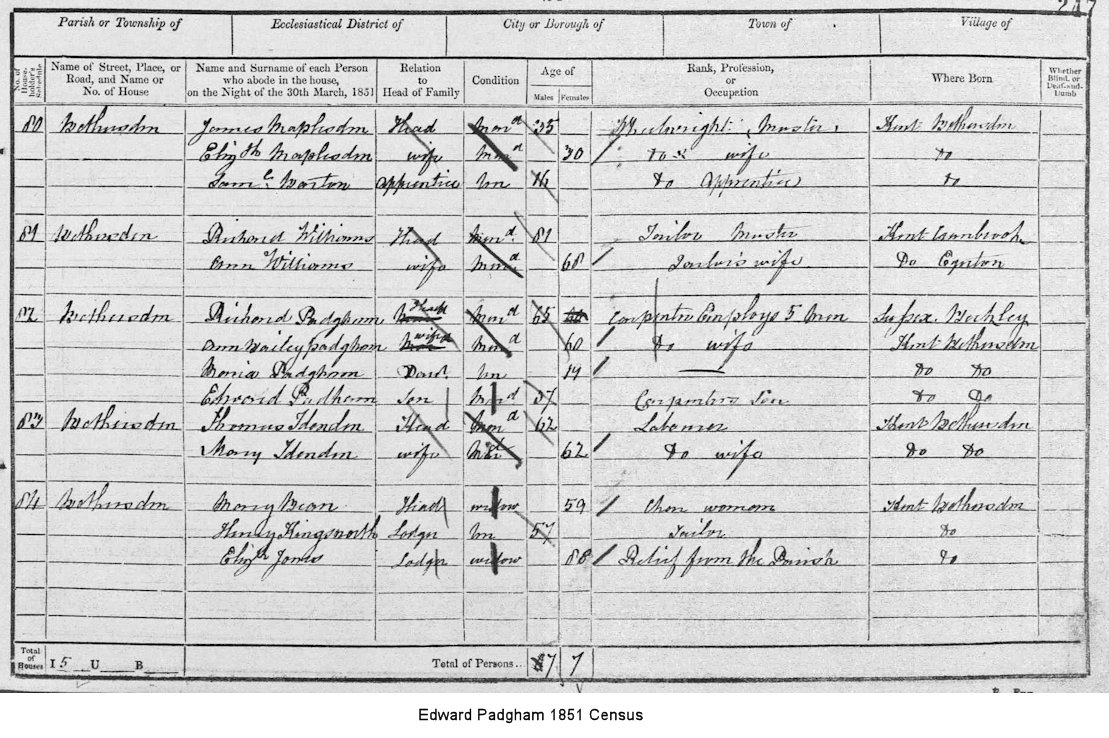 247
Parish or Township of Ecclesiastical District of City or Borough of Town of Village of
No. of House-holder's Schedule Name of Street, Place, or Road, and Name or No. of House Name and Surname of each Person who abode in the house, on the Night of the 30th March, 1851 Relation to Head of Family Condition Age of Males Females Rank, Profession, or Occupation Where Born Whether Blind, or Deaf-and-Dumb
80 Bethersden James Maplesden Head Mard 35 Wheelwright Master Kent Bethersden
Elizth Maplesden wife Mard 30 Do wife Do
Saml Barton apprentice Un 16 Do Apprentice Do
81 Bethersden Richard Williams Head Mard 81 Tailor Master Kent Cranbrook
Ann Williams wife Mard 68 Tailor's wife Do Egerton
82 Bethersden Richard Padgham Head Mard 65 Carpenter Employs 5 Men Sussex Beckley
Ann Bailey Padgham wife Mard 60 Do wife Kent Bethersden
Maria Padgham Daur Un 19 Do Do
Edward Padham Son Mard 37 Carpenters Son Do Do
83 Bethersden Thomas Idenden Head Mard 62 Labourer Kent Bethersden
Mary Idenden wife 62 Do wife Do Do
84 Bethersden Mary Bean Head widow 59 Char woman Kent Bethersden
Henry Kingsnorth Lodger Un 57 Tailor Do
Elizth Jones Lodger widow 88 Relief from the Parish Do
Total of Houses I 5 U B Total of Persons... 7 7
Edward Padgham 1851 Census